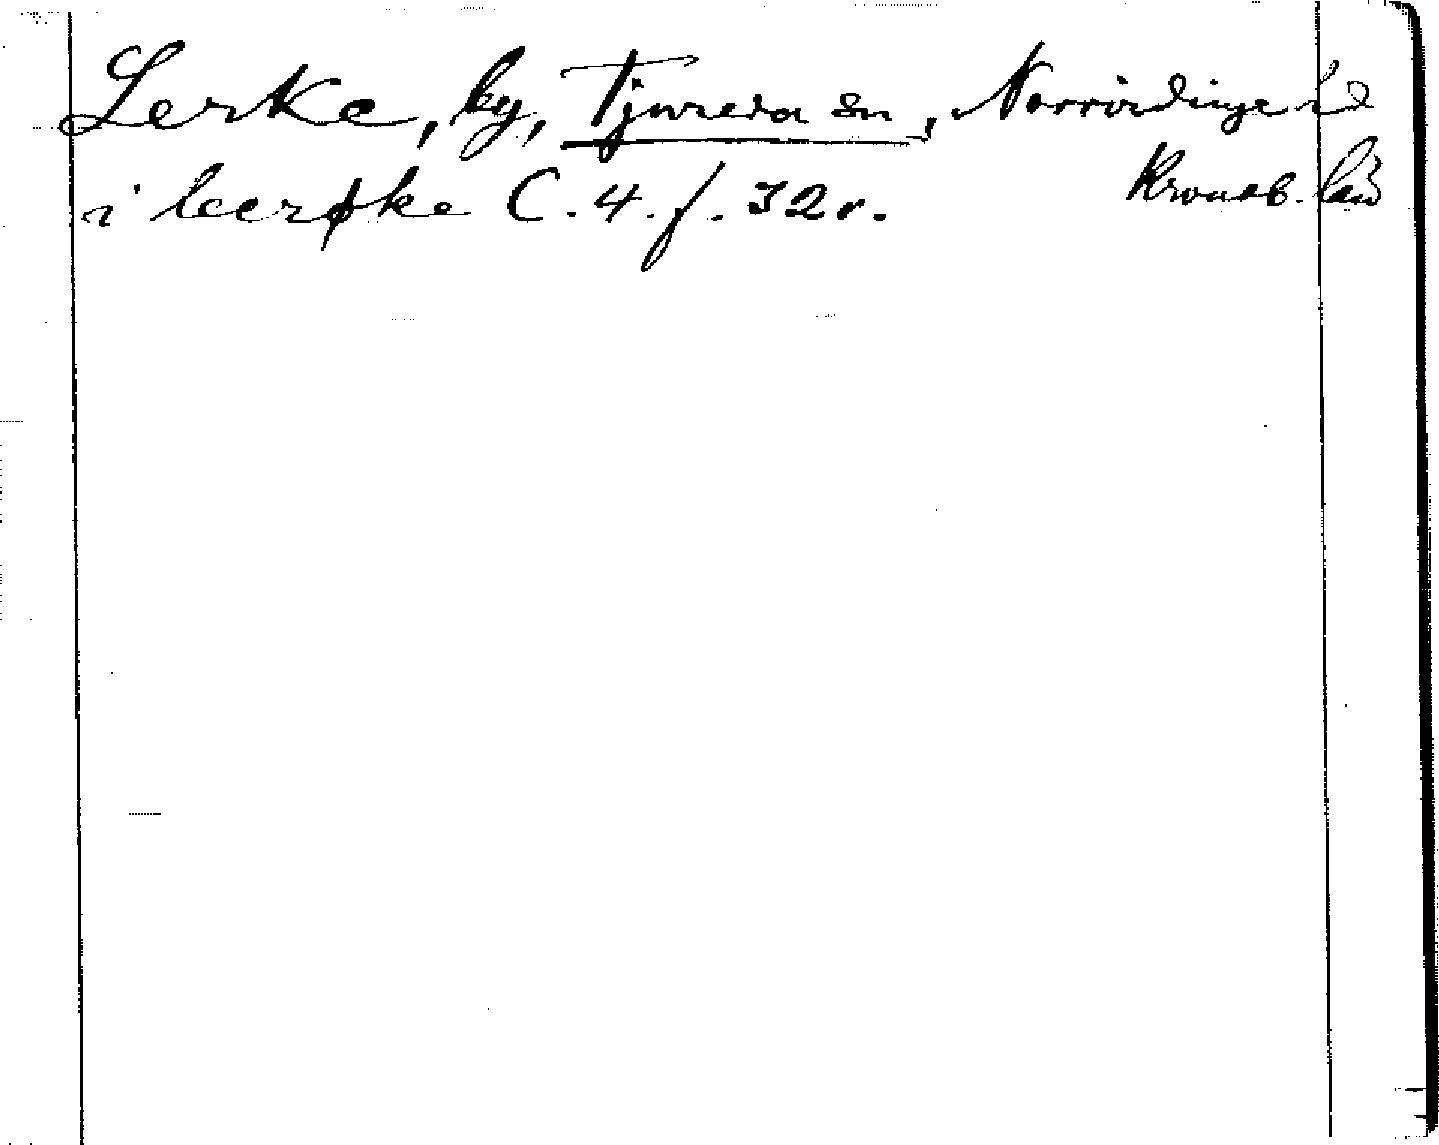 Lerke, by, Tjureda sn, Norrvidinge hd
i leerøke C. 4. f. 32 r. Kronob. län